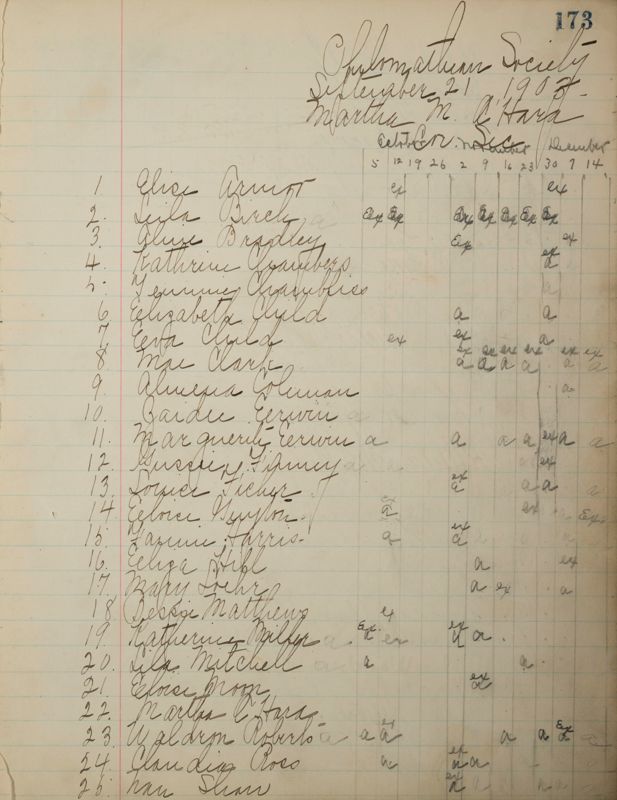 173
Philomathean Society
September 21 1907.
Martha M. O'Hara
Cor. Sec.
October November December
5 12 19 26 2 9 16 23 30 7 14
1 Elise ex ex
2. Leila Birch Ex Ex Ex Ex Ex Ex Ex
3 Bradley Ex ex
4. Kathrine Chambers ex a
5. Chambliss a
6 Elizabeth Child a a
7 Eva Child ex ex a
8 Mae Clark ex a ex a ex a ex a ex a ex a
9. Almeria Coleman a
10. Erwin
11. Marguerite Erwin a a a a ex a a
12. Gussie ex
13. Louise Fisher ex a a a a
14 Eloise ex a ex a Ex
15. Fannie Harris. a ex a
16. Eliza Hill a ex
17. Mary Loehr a ex a
18 Bessie Matthews ex
19. Katherine Miller a Ex. a ex ex a a
20. Lila Mitchell a a
21. Eloise Moon ex a
22. Martha O'Hara
23 Waldron Roberts a a ex a a a Ex a a
24. Claudia Ross a ex a a
25. Nan Shaw ex a